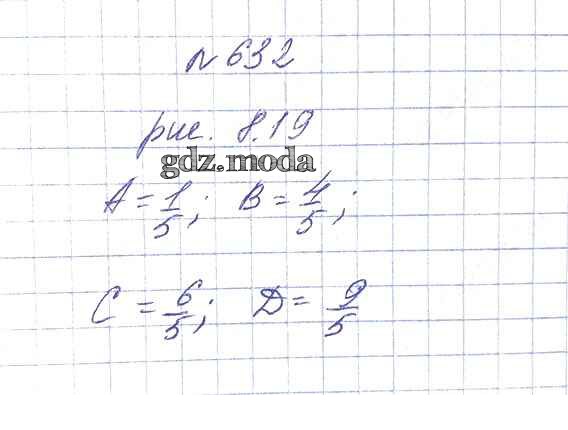 № 632
рис. 8.19
gdz.moda
A = 1/5; B = 4/5;
C = 6/5; D = 9/5